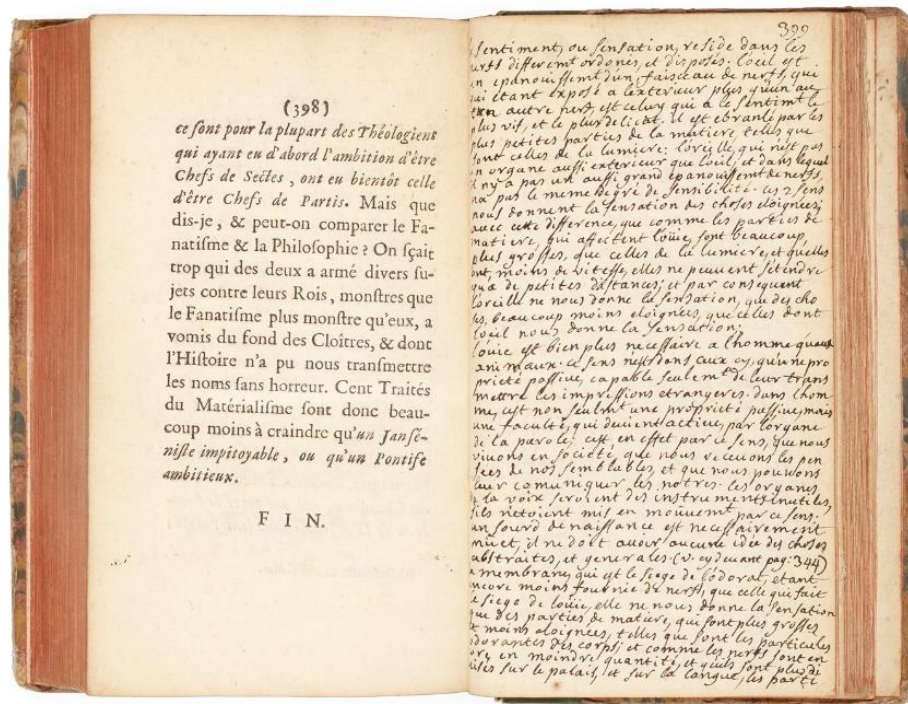 (398)
ce ſont pour la plupart des Théologiens
qui ayant eu d'abord l'ambition d'être
Chefs de Sectes, ont eu bientôt celle
d'être Chefs de Partis. Mais que
dis-je, & peut-on comparer le Fa-
natiſme & la Philoſophie ? On ſçait
trop qui des deux a armé divers ſu-
jets contre leurs Rois, monſtres que
le Fanatiſme plus monſtre qu'eux, a
vomis du fond des Cloîtres, & dont
l'Hiſtoire n'a pu nous tranſmettre
les noms ſans horreur. Cent Traités
du Matérialiſme ſont donc beau-
coup moins à craindre qu'un Janſé-
niſte impitoyable, ou qu'un Pontife
ambitieux.
FIN.
399
sentiment, ou sensation, reside dans les
differemt ordonés, et disposés. l'oeil est
epanouissemt d'un faisceau de nerfs, qui
etant exposé a l'exterieur plus qu'un au
autre nerf, est celuy qui à le sentimt le
plus vif, et le plus delicat. il est ebranlé par les
plus petites parties de la matiere, telles que
sont celles de la lumiere: l'oreille, qui n'est pas
un organe aussi exterieur que l'oeil, et dans lequel
il n'y a pas un aussi grand epanouissemt de nerfs,
n'a pas le meme degré de sensibilité. ces 2 sens
nous donnent la sensation des choses eloignées;
avec cette difference, que comme les parties de
matiere, qui affectent l'oüie, sont beaucoup
plus grosses, que celles de la lumiere, et qu'elles
ont, moins de vitesse, elles ne peuvent s'étendre
qu'a de petites distances; et par consequent
l'oreille ne nous donne la sensation, que des cho
ses, beaucoup moins eloignées, que celles dont
l'oeil nous donne la sensation.
l'oüie est bien plus necessaire a l'homme qu'aux
animaux. ce sens n'est dans ceux cy, qu'une pro
prieté passive, capable seulemt de leur trans
mettre les impressions etrangeres. dans l'hom
me, c'est non seulmt une propriété passive, mais
une faculté, qui devient active, par l'organe
de la parole; c'est en effet par ce sens, que nous
vivons en societé, que nous recevons les pen
sées de nos semblables, et que nous pouvons
leur comuniquer les notres. les organes
de la voix seroient des instruments inutiles,
s'ils n'etoient mis en mouvemt par ce sens.
un sourd de naissance est necessairement
müet, il ne doit avoir aucune idée des choses
abstraites, et generales. (v. cy devant pag: 344)
la membrane, qui est le siege de l'odorat, etant
encore moins fournie de nerfs, que celle qui fait
le siege de l'oüie, elle ne nous donne la sensation
que des parties de matiere, qui sont plus grosses
et moins eloignées, telles que sont les particules
odorantes des corps; et comme les nerfs sont en
en moindre quantité, et qu'ils sont plus
sur le palais, et sur la langue, les parti